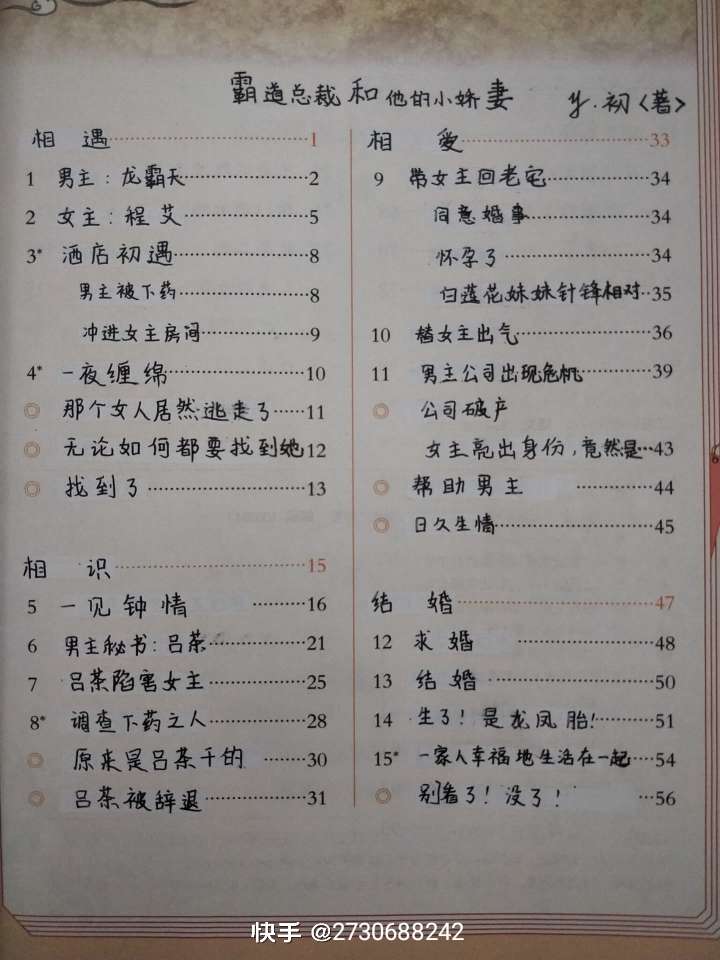 霸道总裁和他的小娇妻 y.初<著>
相 遇 1
1 男主:龙霸天 2
2 女主:程艾 5
3* 酒店初遇 8
男主被下药 8
冲进女主房间 9
4* 一夜缠绵 10
◎ 那个女人居然逃走了 11
◎ 无论如何都要找到她 12
◎ 找到了 13
相 识 15
5 一见钟情 16
6 男主秘书:吕茶 21
7 吕茶陷害女主 25
8* 调查下药之人 28
◎ 原来是吕茶干的 30
◎ 吕茶被辞退 31
相 爱 33
9 带女主回老宅 34
同意婚事 34
怀孕了 34
白莲花妹妹针锋相对 35
10 替女主出气 36
11 男主公司出现危机 39
◎ 公司破产
女主亮出身份,竟然是… 43
◎ 帮助男主 44
◎ 日久生情 45
结 婚 47
12 求婚 48
13 结婚 50
14 生了!是龙凤胎! 51
15* 一家人幸福地生活在一起 54
◎ 别看了!没了! 56
快手 @2730688242